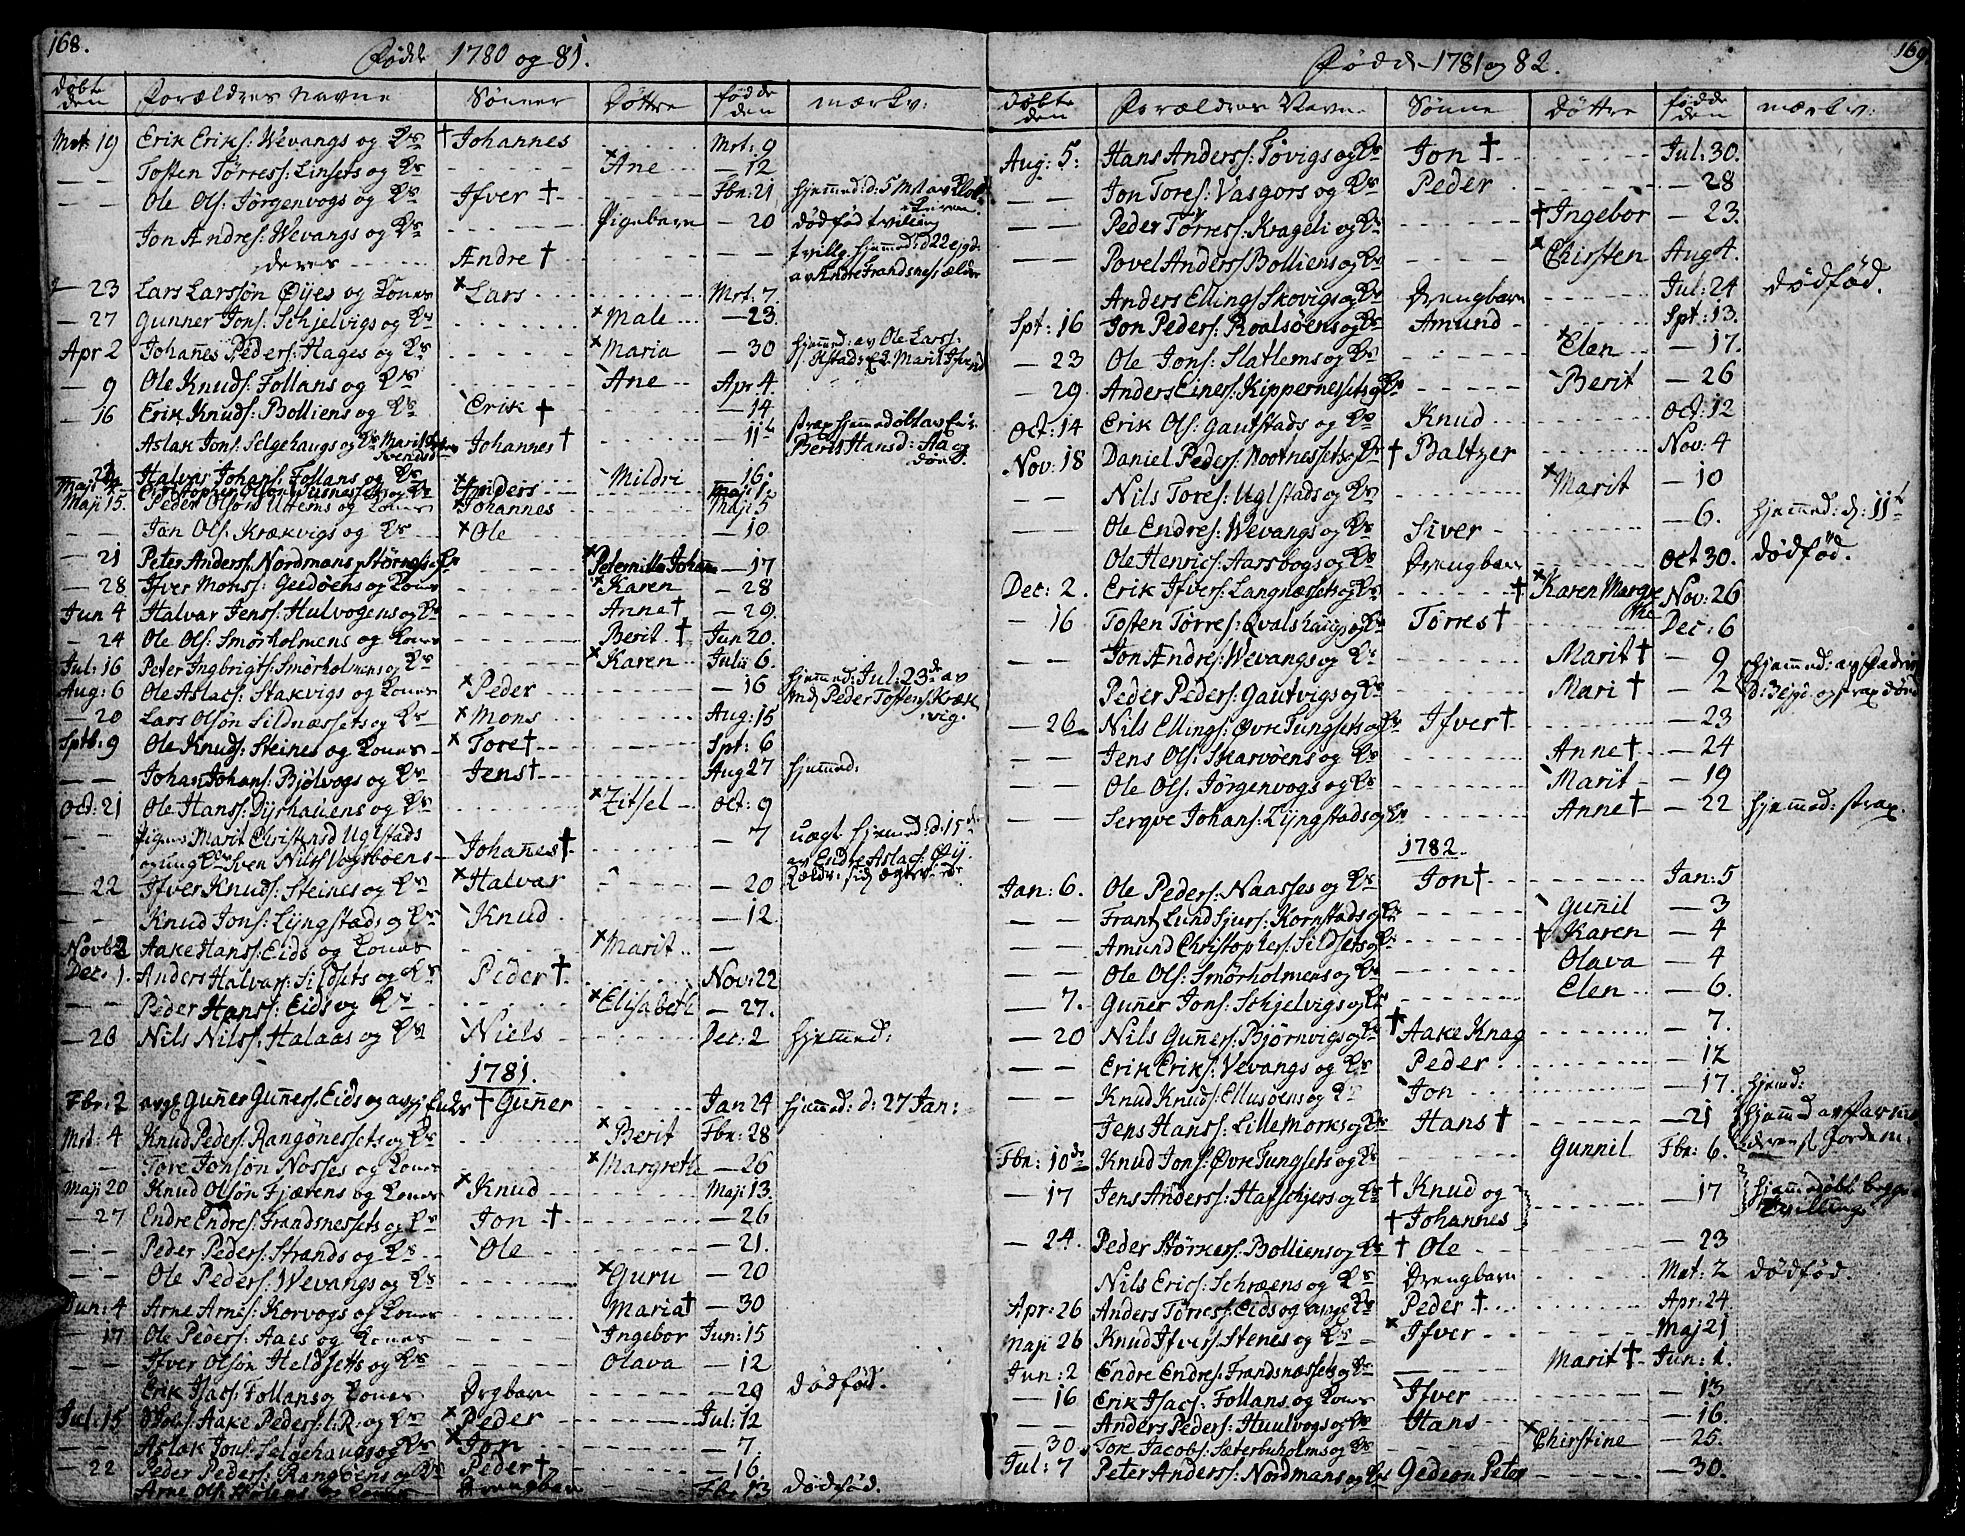 168.
Fødde 1780 og 81.
døbte den | Forældres Navne | Sønner | Døttre | fødde den | mærkv:
Mrt: 19 Erik Eriks: Wevangs og Ks † Johannes Mrt: 9
— — Tosten Tørress: Linsets og Ks × Ane — 12
— — Ole Ols: Jørgenvogs og Ks Ifver † Fbr: 21 hjemmed: d: 5 Mrt av
Jon Andres: Wevangs og Ks Pigebarn — 20 dødfød tvilling
deres Andre † — — tvillg. hjemmed: d 22
av Andre Frandsnes: ælder
— 23 Lars Larssøn Øijes og Kones × Lars Mrt: 7.
— 27 Gunner Jons: Schjelvigs og Ks × Male — 23.
Apr 2 Johañes Peders: Hages og Ks × Maria — 30 hjemmed: av Ole Lars:
— 9 Ole Knuds: Follans og Ks Ane Apr 4.
— 16 Erik Knuds: Bolliens og Ks Erik † — 14 strax hjemedøbt av
Aslak Jons: Selgehaugs og Ks Marit Svendsd: Johannes † — 11 Berit Hansd: Aa og døde.
Halvar Johans: Follans og Ks Mildri — 16.
Anders Maj: 1.
Maji 15. Peder Olsøn Uttems og Kones Johannes Maji 5
— — Jon Ols: Krækvigs og Ks × Ole — 10
— 21 Peter Anders: Nordmans Størnes: Ks × Peternille Johan — 17
— 28 Ifver Mons: Geidøens og Kones × Karen — 28
Jun 4 Halvar Jens: Hulvogens og Ks Anne † — 29.
— 24 Ole Ols: Smørholmens og Kones Berit † Jun 20.
Jul: 16 Peter Ingbrigts: Smørholmens og Ks × Karen Julii 6.
Aug: 6 Ole Aslacs: Stakvigs og Kones × Peder — 16 hjemmed: Jul: 23de av
— 20 Lars Olsøn Sildnæssets og Ks × Mons Aug: 15 Peder Tostens: Krækvig.
Sptb: 9 Ole Knuds: Steines og Kones × Tore † Spt: 6
— — Johan Johans: Bjølvogs og Ks Jens † Aug 27 hjemmed:
Oct: 21 Ole Hanss: Dyrhauens og Ks × Zitsel Oct: 9
— — Pigens Marit Christensd Uglstads — 7 uægt hjemmed: d: 15de
og ungK: Sven Nilss Vogsbøens Johañes † av Endre Aslacs: Øij.
— 22 Ifver Knuds: Steines og Ks × Halvar — 20
— — Knud Jons: Lyngstads og Ks Knud — 12.
Novb: 2 Aake Hans: Eids og Kones × Marit —
Dec: 1. Anders Halvars: Sildsets og Ks Peder † Nov: 22
— — Peder Hans: Eids og Ks × Elisabeth — 27.
— 28 Nils Nils: Halaas og Ks Niels Dec: 2 hjemmed:
1781.
Fbr: 2 avgl Guñer Guñers: Eids og Enkes † Guñer Jan 24 hjemmed: d: 27 Jan:
Mrt: 4 Knud Peders: Rangønessets og Ks × Berit Fbr: 28
— — Tore Jonsøn Nosses og Kones × Margrethe — 26
Maji 20 Knud Olsøn Fjærens og Kones × Knud Maji 13.
— 27 Endre Endres: Frandsnessets og Ks Jon † — 26
— — Peder Peders: Strands og Ks Ole — 21.
— — Ole Peders: Wevangs og Ks × Guru — 20
Jun: 4 Arne Arnes: Korvogs og Kones Maria † — 30
— 17 Ole Peders: Aaes og Kones Ingebor Jun: 15
— — Ifver Olsøn Heldsetts og Ks Olava — 12
Erik Isacs: Follans og Kones Drgbarn — 29 dødfød.
Jul: 15 Skols: Aake Peders: og Ks × Peder Jul: 12
— — Aslak Jons: Selgehaugs og Ks × Jon — 7.
— 22 Peder Peders: Rangøens og Ks Peder † — 16.
Arne Ols: Kones Drengbarn Fbr: 13 dødfød.
169
Fødde 1781 og 82.
døbte den | Forældres Navne | Sønne | Døttre | fødde den | mærkv:
Aug: 5: Hans Anderss: Tøvigs og Ks Jon † Jul: 30.
— — Jon Tores: Vasgors og Ks Peder — 28
— — Peder Tørres: Krageli og Ks † Ingebor — 23.
— — Povel Anders: Bolliens og Ks × Chirsten Aug 4.
Anders Ellings: Skovigs og Ks Drengbarn Jul: 24 dødfød.
Spt: 16 Jon Peders: Roalsøens og Ks Amund Spt: 13.
— 23 Ole Jons: Slatlems og Ks × Elen — 17.
— 29 Anders Einers: Kippernessets og Ks Berit — 26
Oct: 14 Erik Ols: Gautstads og Ks Knud Oct: 12
Nov: 18 Daniel Peders: Nootnessets og Ks † Baltzer Nov: 4
— — Nils Tores: Uglstads og Ks × Marit — 10
— — Ole Endres: Wevangs og Ks Siver — 6. hjemmed: d: 11te
Ole Henrics: Aarsbogs og Ks Drengbarn Oct 30. dødfød.
Dec: 2. Erik Ifvers: Langnæssets og Ks † × Karen Margrethe Nov: 26
— 16 Tosten Tørres: Qvalshaugs og Ks Tørres † Dec: 6
— — Jon Andres: Wevangs og Ks Marit † — 9 hjemmed: av
Peder Peders: Gautvigs og Ks Mari † — 2 og strax døde
— 26 Nils Ellings: Øvre Tungsets og Ks Ifver † — 23
— — Jens Ols: Skarvøens og Ks Anne † — 24
— — Ole Ols: Jørgenvogs og Ks Marit — 19
— — Serqve Johans: Lyngstads og Ks Anne † — 22 hjemmed: strax.
1782.
Jan: 6. Ole Peders: Naasses og Ks Jon † Jan: 5
— — Frantz Lund Sjurs: Kornstads og Ks Guñil — 3
— — Amund Christophers: Sildsets og Ks † Karen — 4
— — Ole Ols: Smørholmens og Ks Olava — 4
— 7. Guñer Jons: Schjelvigs og Ks Elen — 6.
— 20 Nils Guñers: Bjørnvigs og Ks † Aake Knag — 7.
Erik Eriks: Vevangs og Ks Peder — 12
Knud Knuds: Ellusøens og Ks Jon — 17. hjemd:
Jens Hans: Lillemorks og Ks Hans † — 21 hjemmed av
Fbr: 10de Knud Jons: Øvre Tungsets og Ks Gunnil Fbr: 6. Jordem:
— 17 Jens Anders: Hafschjers og Ks † Knud og — 17 hjemmedøbt begge
† Johannes Tvillinge
— 24. Peder Størkers: Bolliens og Ks † Ole — 23
Nils Erics: Schrøens og Ks Drengbarn Mrt: 2 dødfød
Apr: 26 Anders Tørress: Eids og Ks Peder † Apr: 24
Maji 26 Knud Ifvers: Stenes og Ks × Ifver Maj 21
Jun: 2 Endre Endres: Frandsnæssets og Ks Marit † Jun: 1.
— 16 Erik Isacs: Follans og Kones Ifver — 13
— — Anders Peders: Huulvogs og Ks Hans — 16.
— 30 Tore Jacobs: Sæterbuholms og Ks × Chirstine — 25.
Jul: 7 Peter Anders: Nordmans og Ks Gedeon Peter — 30.